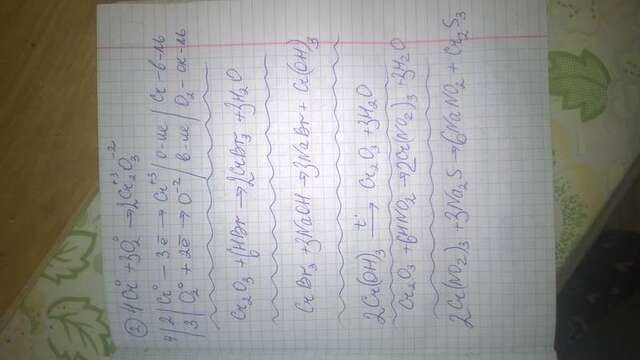 ② 4Cr⁰ + 3O₂⁰ → 2Cr₂⁺³O₃⁻²
4|2|Cr⁰ - 3ē → Cr⁺³ | о-ие | Cr - в-ль
|3|O₂⁰ + 2ē → O⁻² | в-ие | O₂ - ок-ль
Cr₂O₃ + 6HBr → 2CrBr₃ + 3H₂O
CrBr₃ + 3NaOH → 3NaBr + Cr(OH)₃
2Cr(OH)₃ →t° Cr₂O₃ + 3H₂O
Cr₂O₃ + 6HNO₂ → 2Cr(NO₂)₃ + 3H₂O
2Cr(NO₂)₃ + 3Na₂S → 6NaNO₂ + Cr₂S₃